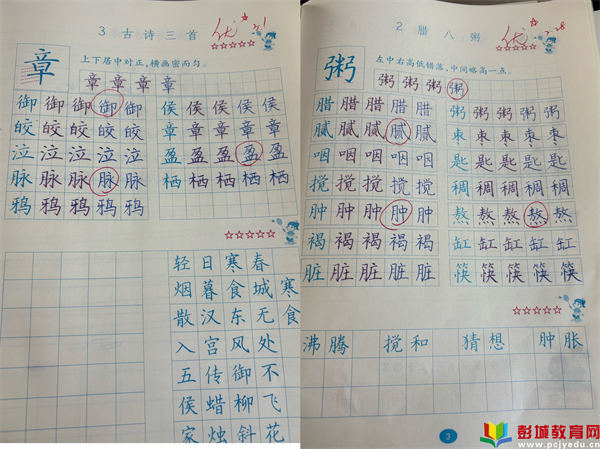 3 古诗三首
优 3.1
上下居中对正,横画密而匀。
章
章 章 章 章
御 御 御 御 御
皎 皎 皎 皎 皎
泣 泣 泣 泣 泣
脉 脉 脉 脉 脉
鸦 鸦 鸦 鸦 鸦
侯 侯 侯 侯 侯
章 章 章 章 章
盈 盈 盈 盈 盈
栖 栖 栖 栖 栖
轻 日 寒 春
烟 暮 食 城 寒
散 汉 东 无 食
入 宫 风 处
五 传 御 不
侯 蜡 柳 飞
家 烛 斜 花
2 腊八粥
优
左中右高低错落,中间略高一点。
粥
粥 粥 粥 粥
腊 腊 腊 腊 腊
腻 腻 腻 腻 腻
咽 咽 咽 咽 咽
搅 搅 搅 搅 搅
肿 肿 肿 肿 肿
褐 褐 褐 褐 褐
脏 脏 脏 脏 脏
粥 粥 粥 粥 粥
枣 枣 枣 枣 枣
匙 匙 匙 匙 匙
稠 稠 稠 稠 稠
熬 熬 熬 熬 熬
缸 缸 缸 缸 缸
筷 筷 筷 筷 筷
沸腾 搅和 猜想 肿胀
3
彭城教育网
www.pcjyedu.cn